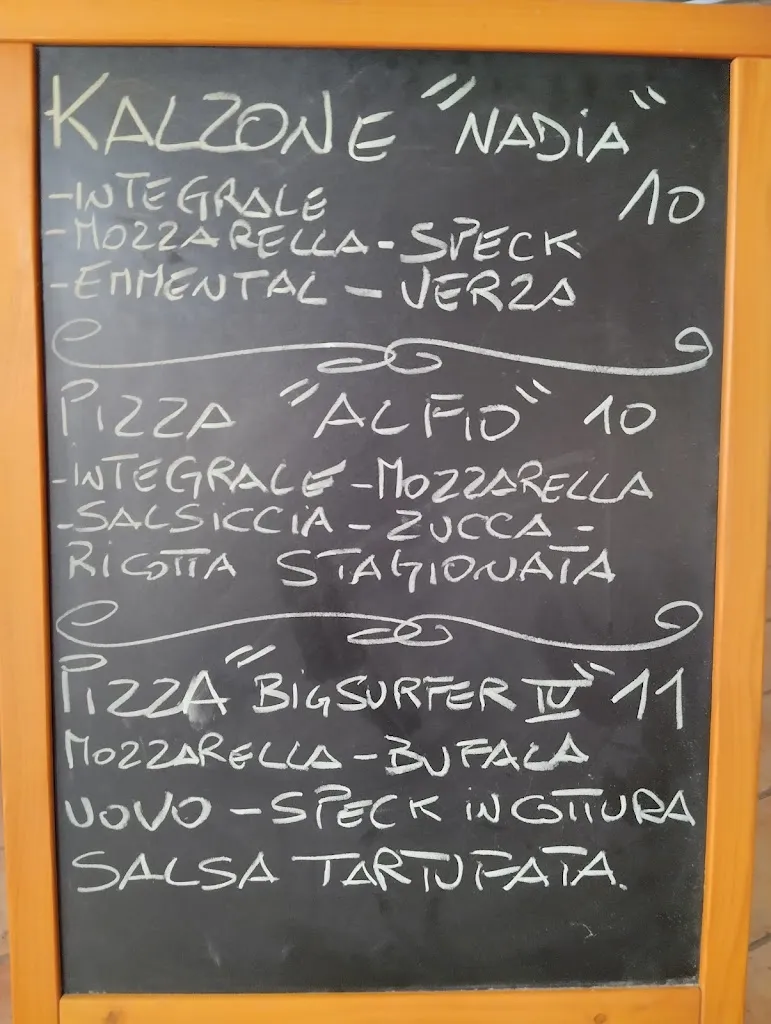 KALZONE "NADIA"
-INTEGRALE 10
-MOZZARELLA-SPECK
-EMMENTAL - VERZA
PIZZA "ALFIO" 10
-INTEGRALE-MOZZARELLA
-SALSICCIA - ZUCCA -
RICOTTA STAGIONATA
PIZZA "BIGSURFER IV" 11
MOZZARELLA-BUFALA
UOVO - SPECK IN COTTURA
SALSA TARTUFATA.